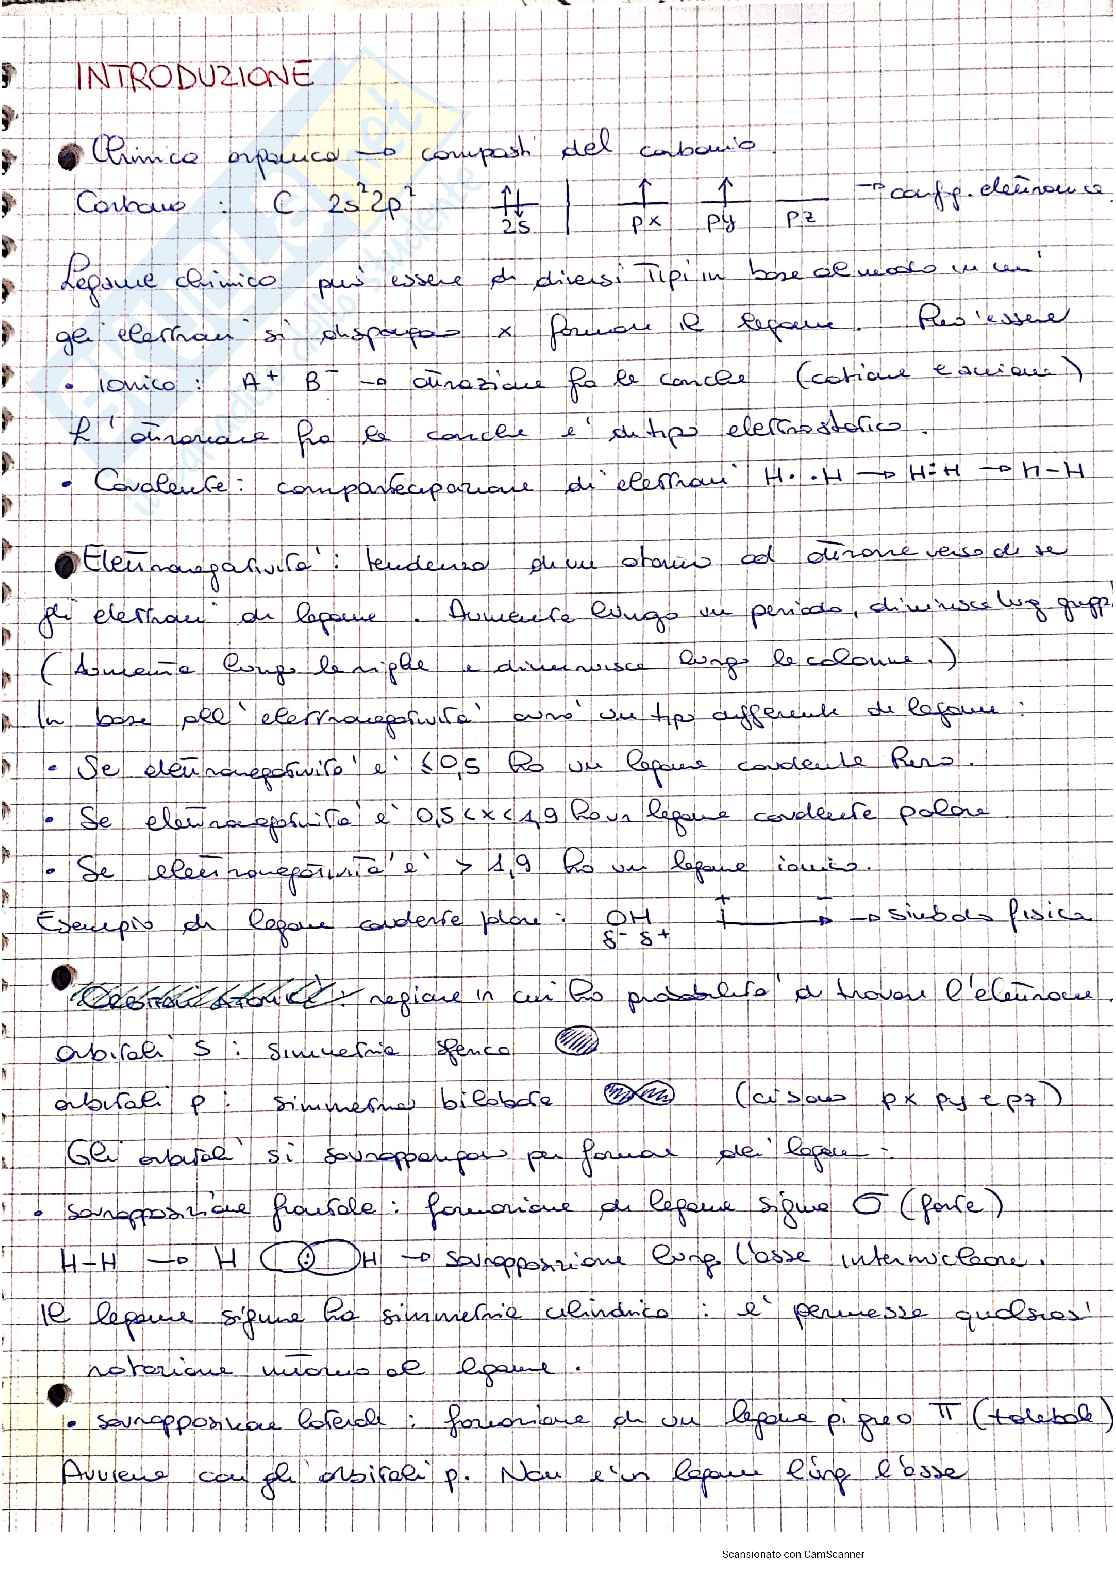 INTRODUZIONE
Chimica organica → composti del carbonio.
Carbonio : C 2s² 2p² 2s px py pz → config. elettronica
Legame chimico può essere di diversi tipi in base al modo in cui
gli elettroni si dispongono x formare il legame. Può essere
• IONICO : A⁺ B⁻ → attrazione fra le cariche (catione e anione)
L'attrazione fra le cariche e' di tipo elettrostatico.
• Covalente : compartecipazione di elettroni H· ·H → H:H → H-H
Elettronegatività : tendenza di un atomo ad attrarre verso di se
gli elettroni di legame. Aumenta lungo un periodo, diminuisce lung gruppi
(Aumenta lungo le righe e diminuisce lungo le colonne.)
In base all'elettronegatività avrò un tipo differente di legame :
• Se elettronegatività e' ≤ 0,5 ho un legame covalente puro.
• Se elettronegatività e' 0,5<x<1,9 ho un legame covalente polare
• Se elettronegatività e' > 1,9 ho un legame ionico.
Esempio di legame covalente polare : OH + − → simbolo fisica
δ⁻ δ⁺
: regione in cui ho probabilità di trovare l'elettrone
orbitali s : simmetria sferica
orbitali p : simmetria bilobata (ci sono px py e pz)
Gli orbitali si sovrappongono per formare dei legami :
• sovrapposizione frontale : formazione di legame sigma σ (forte)
H-H → H H → sovrapposizione lung l'asse internucleare.
Il legame sigma ha simmetria cilindrica : e' permessa qualsiasi
rotazione intorno al legame.
• sovrapposizione laterale : formazione di un legame pi greco π (+ debole)
Avviene con gli orbitali p. Non e' un legame lung l'asse
Scansionato con CamScanner